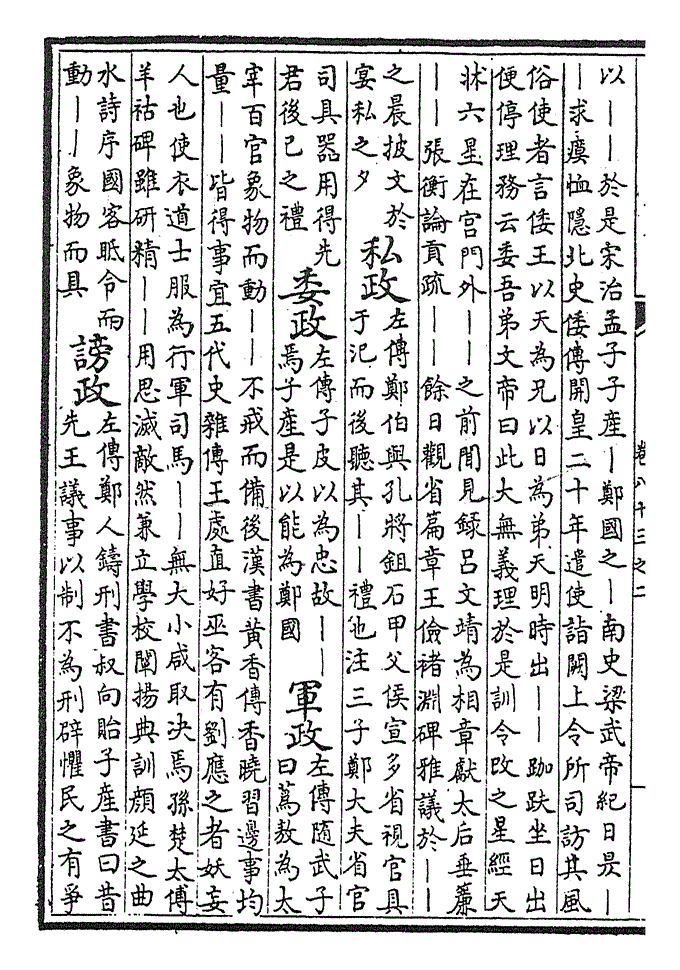 卷八十三之二
以――於是宋治孟子子産―鄭國之―南史梁武帝紀日昃―
―求瘼恤隱北史倭傳開皇二十年遣使詣闕上令所司訪其風
俗使者言倭王以天為兄以日為弟天明時出――跏趺坐日出
便停理務云委吾弟文帝曰此大無義理於是訓令改之星經天
牀六星在宫門外――之前聞見録吕文靖為相章獻太后垂簾
――張衡論貢疏――餘日觀省篇章王儉褚淵碑雅議於――
之晨披文於
宴私之夕
私政
左傳鄭伯與孔將鉏石甲父侯宣多省視官具
于氾而後聽其――禮也注三子鄭大夫省官
司具器用得先
君後已之禮
委政
左傳子皮以為忠故――
焉子産是以能為鄭國
軍政
左傳隨武子
曰蔿敖為太
宰百官象物而動――不戒而備後漢書黄香傳香曉習邊事均
量――皆得事宜五代史雜傳王處直好巫客有劉應之者妖妄
人也使衣道士服為行軍司馬――無大小咸取决焉孫楚太傅
羊祜碑雖研精――用思滅敵然兼立學校闡揚典訓顔延之曲
水詩序國容眡令而
動――象物而具
謗政
左傳鄭人鑄刑書叔向貽子産書曰昔
先王議事以制不為刑辟懼民之有爭